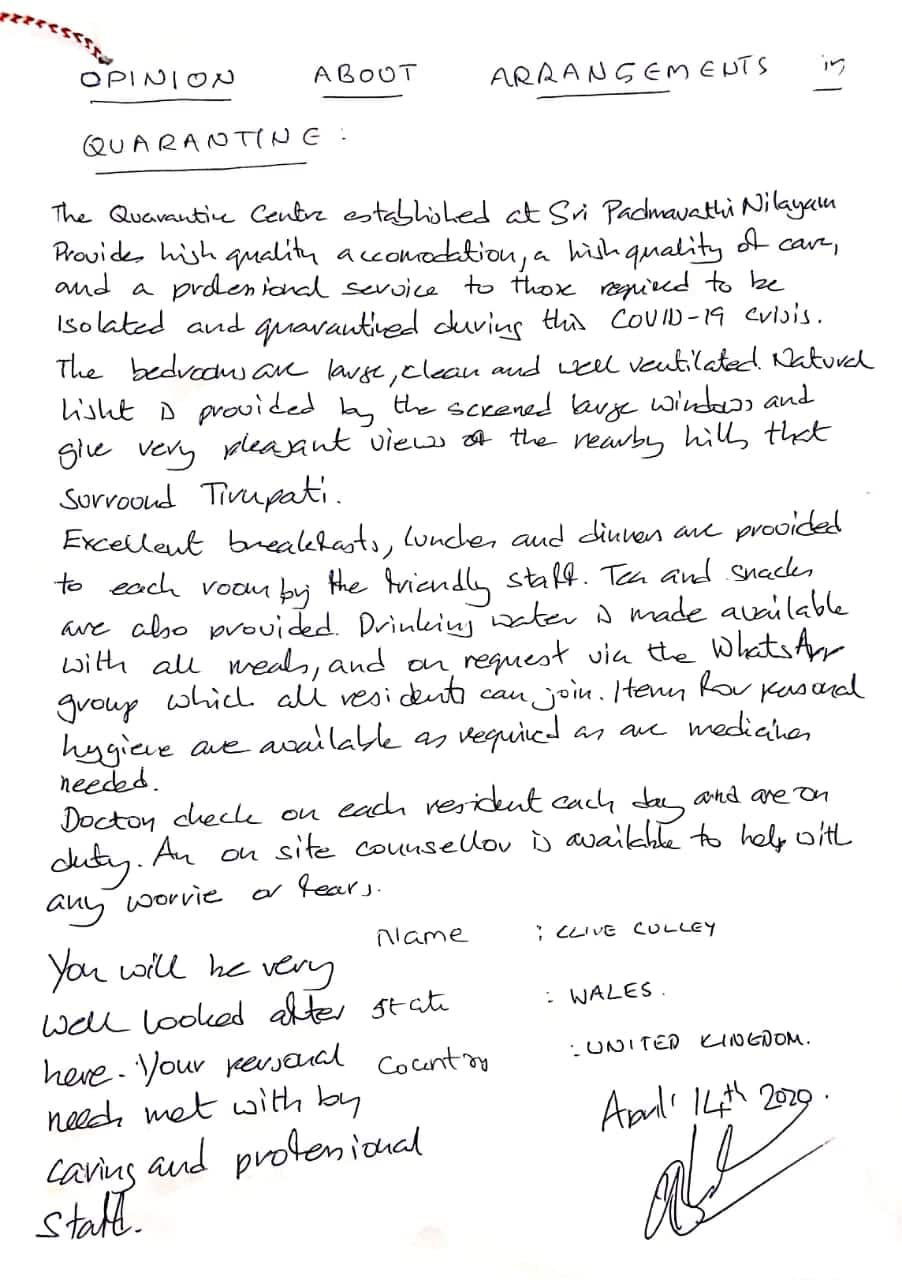 OPINION ABOUT ARRANGEMENTS in
QUARANTINE :
The Quarantine Centre established at Sri Padmavathi Nilayam
Provides high quality accomodation, a high quality of care,
and a professional service to those required to be
Isolated and quarantined during this COVID-19 crisis.
The bedrooms are large, clean and well ventilated. Natural
light is provided by the screened large windows and
give very pleasant views of the nearby hills that
Surround Tirupati.
Excellent breakfasts, lunches and dinners are provided
to each room by the friendly staff. Tea and snacks
are also provided. Drinking water is made available
with all meals, and on request via the WhatsApp
group which all residents can join. Items for personal
hygiene are available as required as are medicines
needed.
Doctors check on each resident each day and are on
duty. An on site counsellor is available to help with
any worrie or fears.
You will be very
well looked after
here. Your personal
needs met with by
caring and professional
staff.
Name : CLIVE CULLEY
State : WALES.
Country : UNITED KINGDOM.
April 14th 2020.